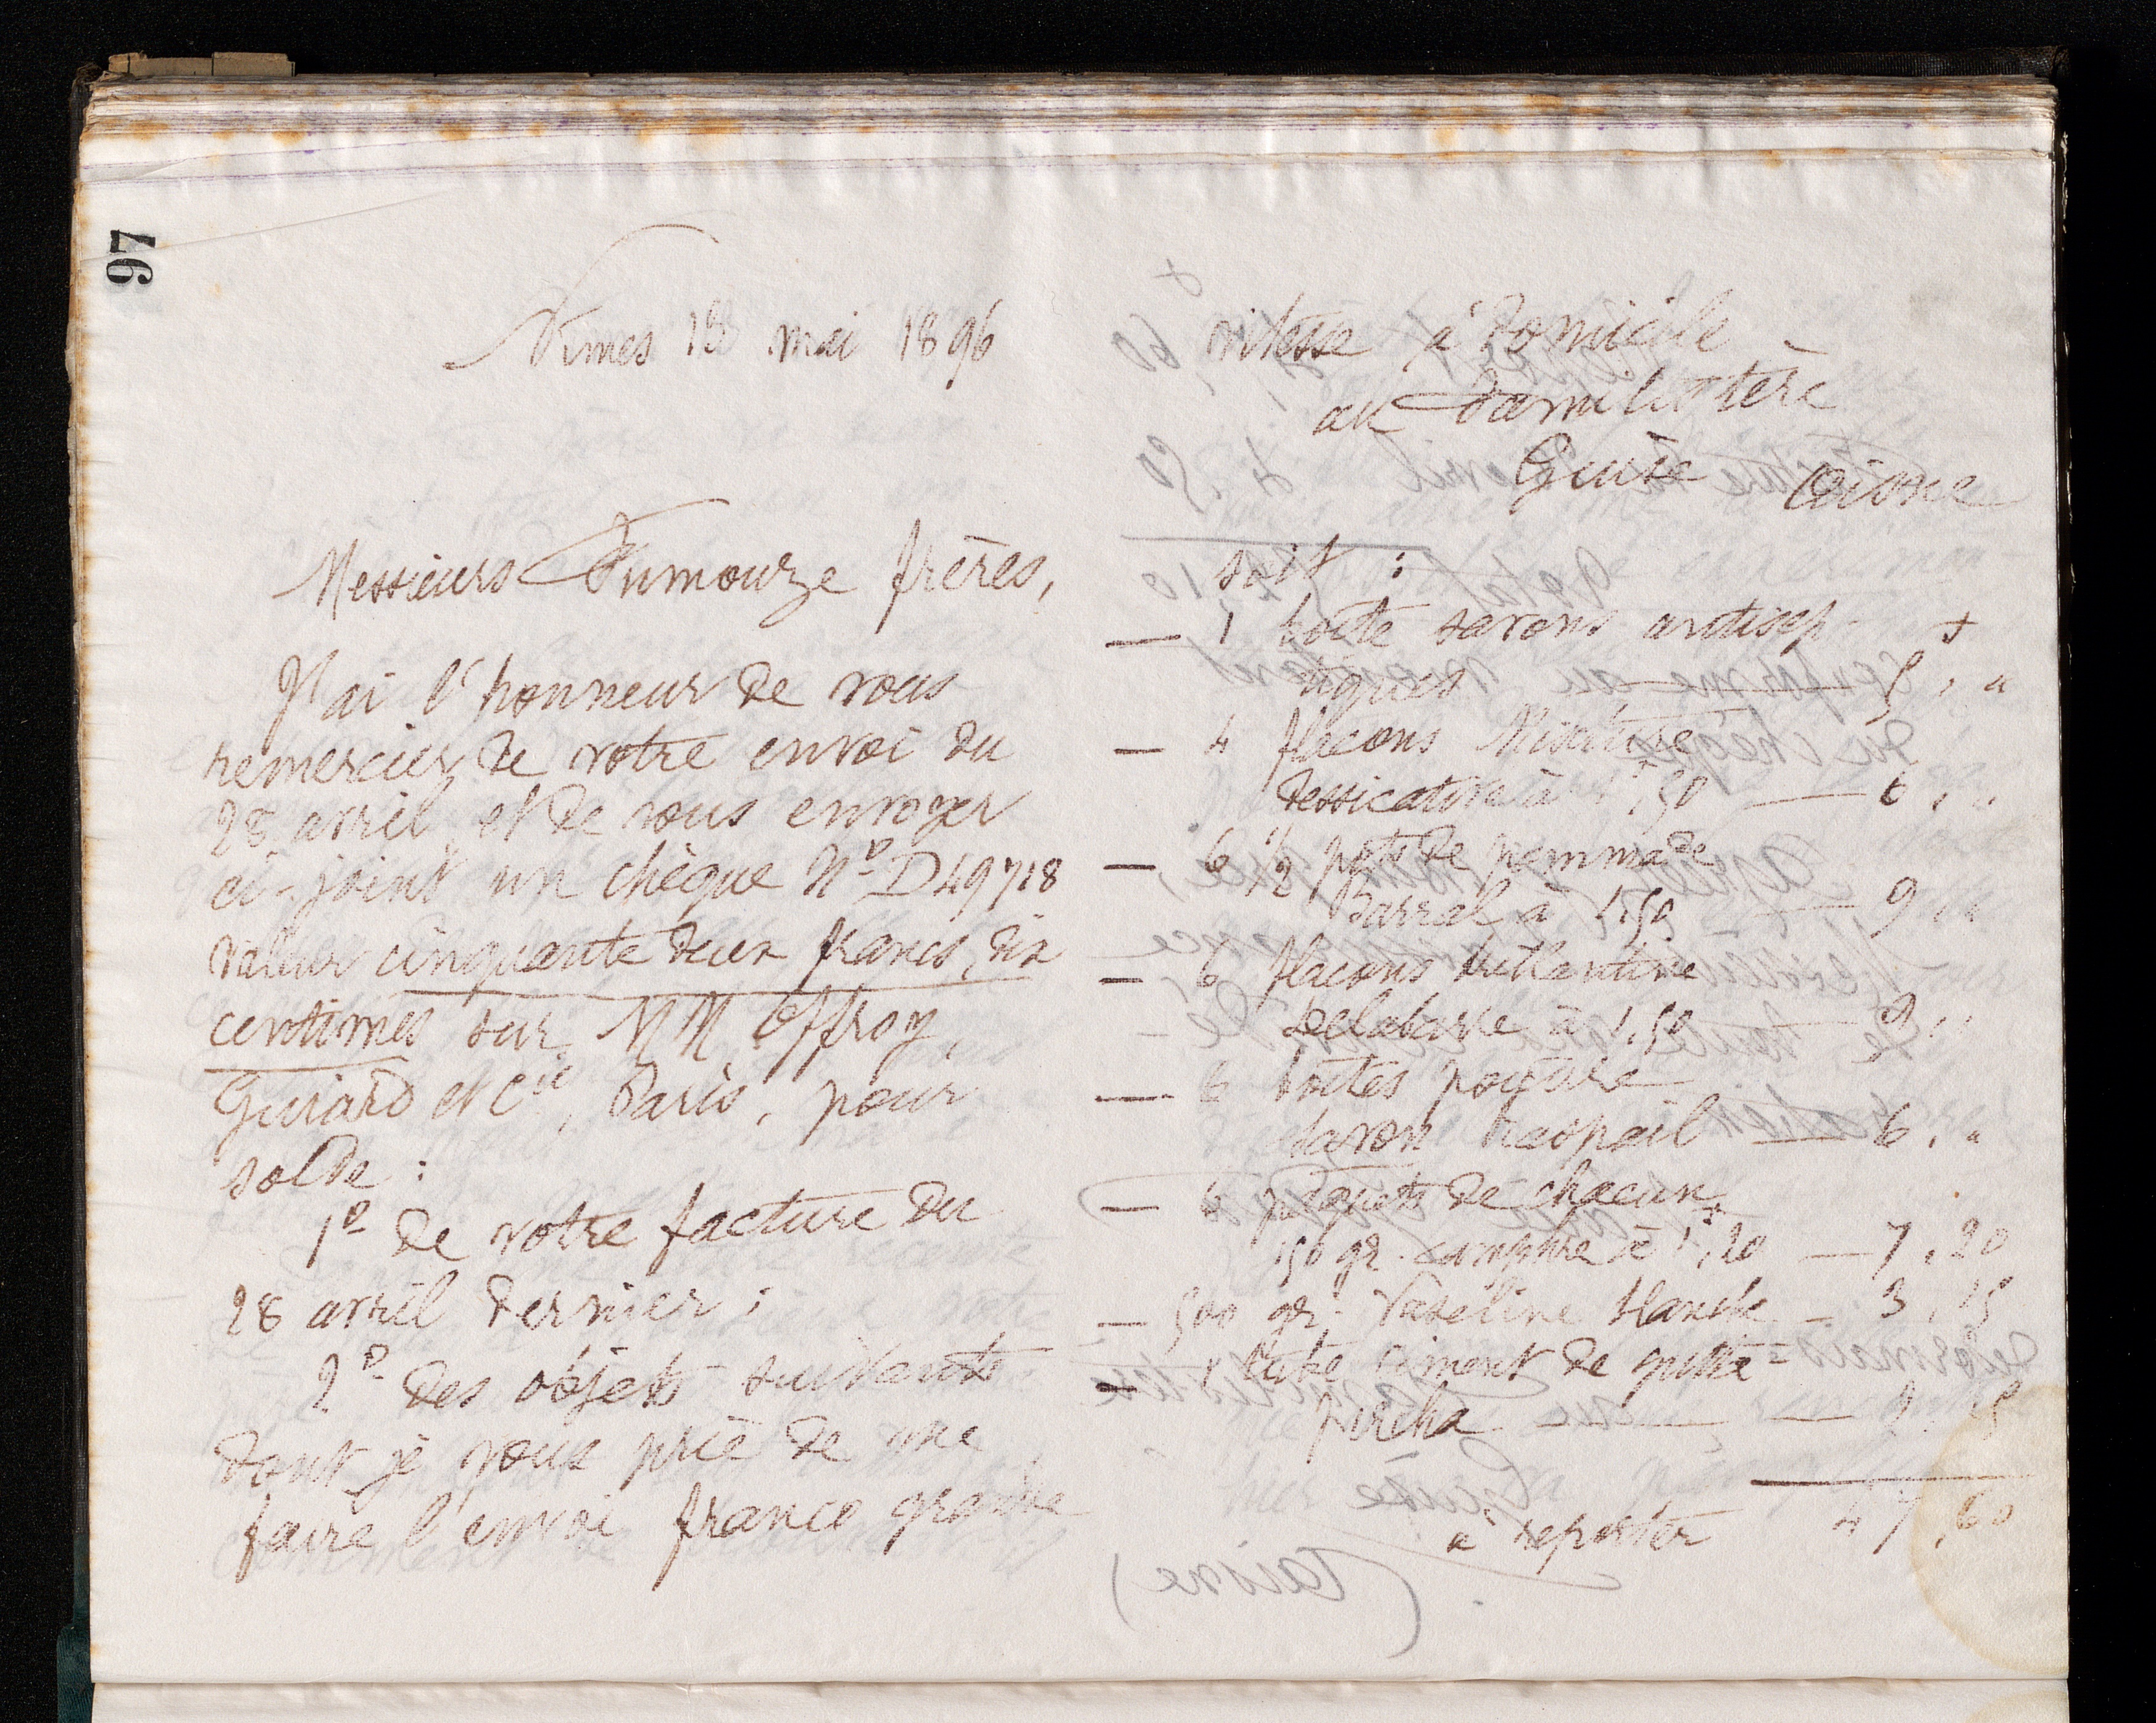 97
Nîmes 18 mai 1896
Messieurs Fumouze frères,
J'ai l'honneur de vous
remercier de votre envoi du
28 avril et de vous envoyer
ci-joint un chèque N° D49718
valeur cinquante deux francs, dix
centimes sur MM Offroy,
Guiard et Cie, Paris, pour
solde :
1° de votre facture du
28 avril dernier ;
2° des objets suivants
dont je vous prie de me
faire l'envoi franco grande
vitesse à domicile
au Familistère
Guise Aisne
soit :
— 1 boîte savons antisep-
tiques — 5, "
— 4 flacons Mixture
dessicative à 1f,50 — 6, "
— 6 1/2 pots de pommade
Barral à 1,50 — 9 "
— 6 flacons brillantine
Delabarre à 1,50 — 9 "
— 6 boîtes poudre
savon Raspail — 6, "
— 6 paquets de chacun
150 gr. camphre à 1f,20 — 7,20
— 500 gr. Vaseline blanche — 3,15
— 1 tube ciment de gutta-
percha — 2 25
à reporter 47,60